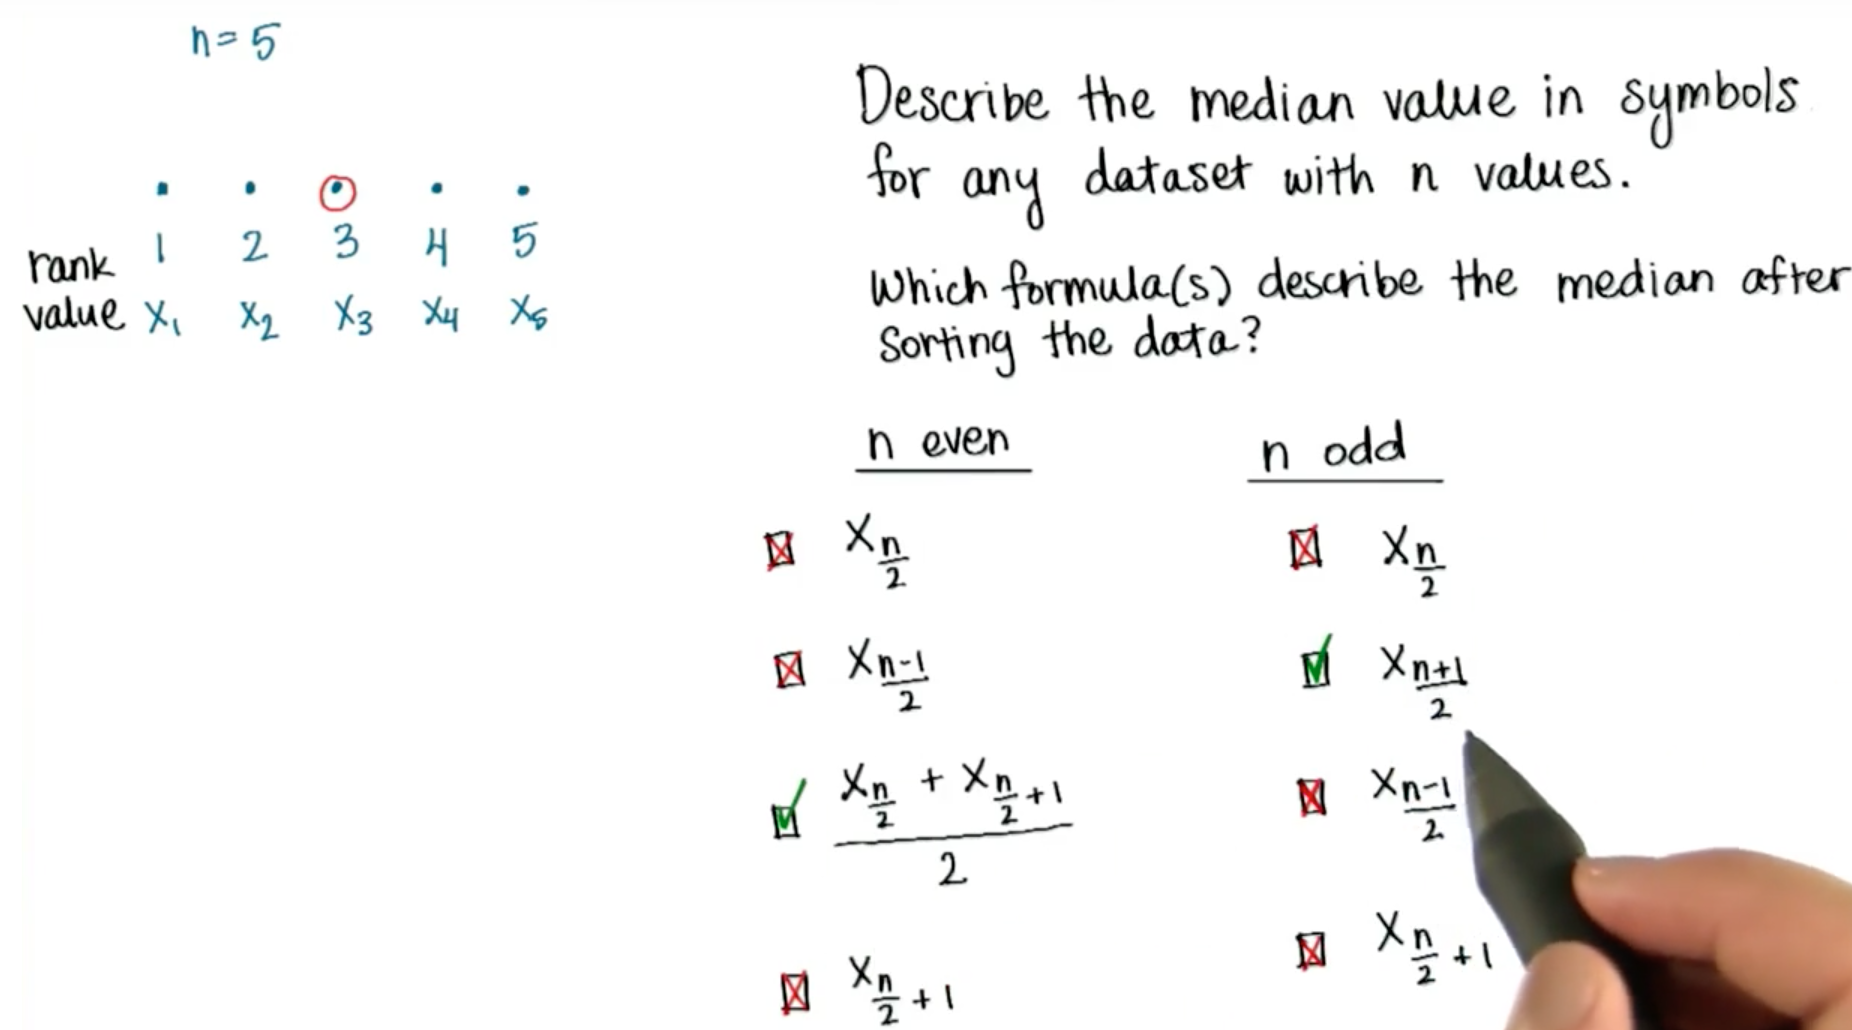 n = 5
1 2 3 4 5
rank
value x₁ x₂ x₃ x₄ x₅
Describe the median value in symbols
for any dataset with n values.
Which formula(s) describe the median after
sorting the data?
n even
x_{n/2}
x_{(n-1)/2}
(x_{n/2} + x_{n/2+1}) / 2
x_{n/2+1}
n odd
x_{n/2}
x_{(n+1)/2}
x_{(n-1)/2}
x_{n/2+1}